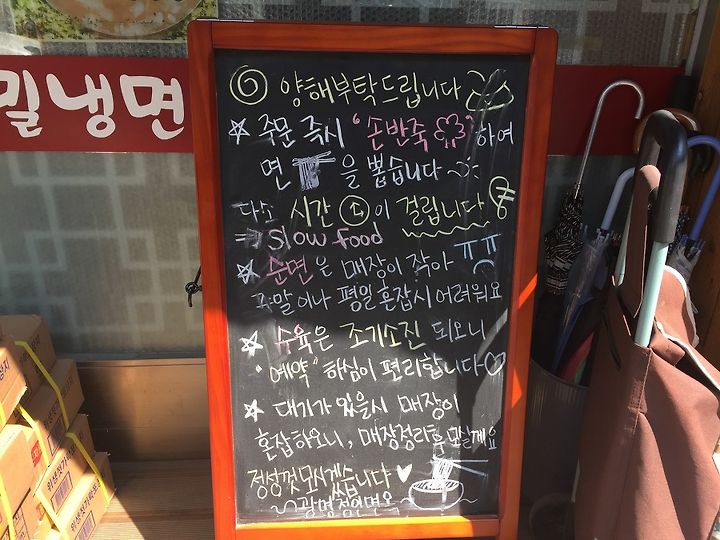 밀냉면
양해부탁드립니다
☆ 주문 즉시 '손반죽' 하여
면 을 뽑습니다 ~
다소 시간이 걸립니다
⇒ Slow food
☆ 순면은 매장이 작아 ㅠㅠ
주말이나 평일혼잡시 어려워요
☆ 수육은 조기소진 되오니
"예약" 하심이 편리합니다 ♡
☆ 대기가 있을시 매장이
혼잡하오니, 매장정리후 모실게요
정성껏 모시겠습니다 ♥
~광명정인면옥~